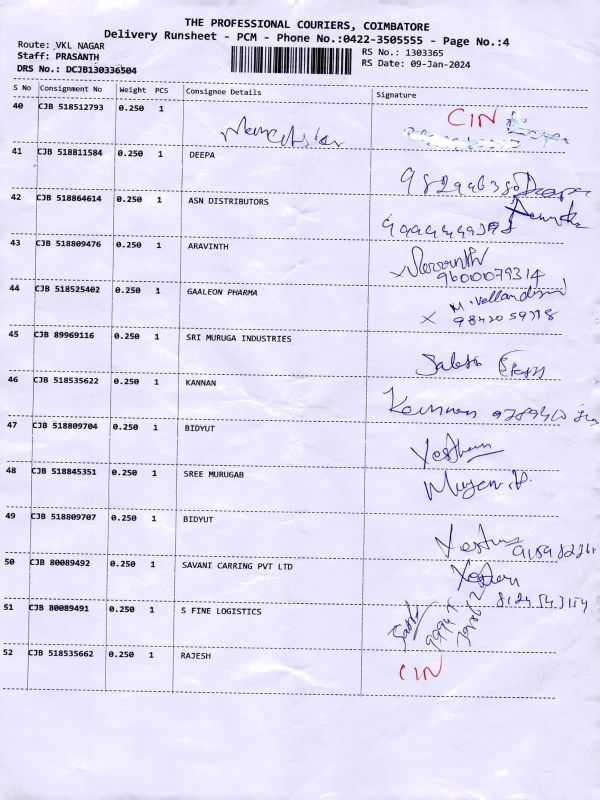 THE PROFESSIONAL COURIERS, COIMBATORE
Delivery Runsheet - PCM - Phone No.:0422-3505555 - Page No.:4
Route: VKL NAGAR
Staff: PRASANTH
DRS No.: DCJB130336504
RS No.: 1303365
RS Date: 09-Jan-2024
S No Consignment No Weight PCS Consignee Details Signature
40 CJB 518512793 0.250 1 CIN
41 CJB 518811584 0.250 1 DEEPA
42 CJB 518864614 0.250 1 ASN DISTRIBUTORS
43 CJB 518809476 0.250 1 ARAVINTH
9600079314
44 CJB 518525402 0.250 1 GAALEON PHARMA
45 CJB 89969116 0.250 1 SRI MURUGA INDUSTRIES
46 CJB 518535622 0.250 1 KANNAN
Kannan
47 CJB 518809704 0.250 1 BIDYUT
48 CJB 518845351 0.250 1 SREE MURUGAB
49 CJB 518809707 0.250 1 BIDYUT
50 CJB 80089492 0.250 1 SAVANI CARRING PVT LTD
8124543154
51 CJB 80089491 0.250 1 S FINE LOGISTICS
52 CJB 518535662 0.250 1 RAJESH CIN